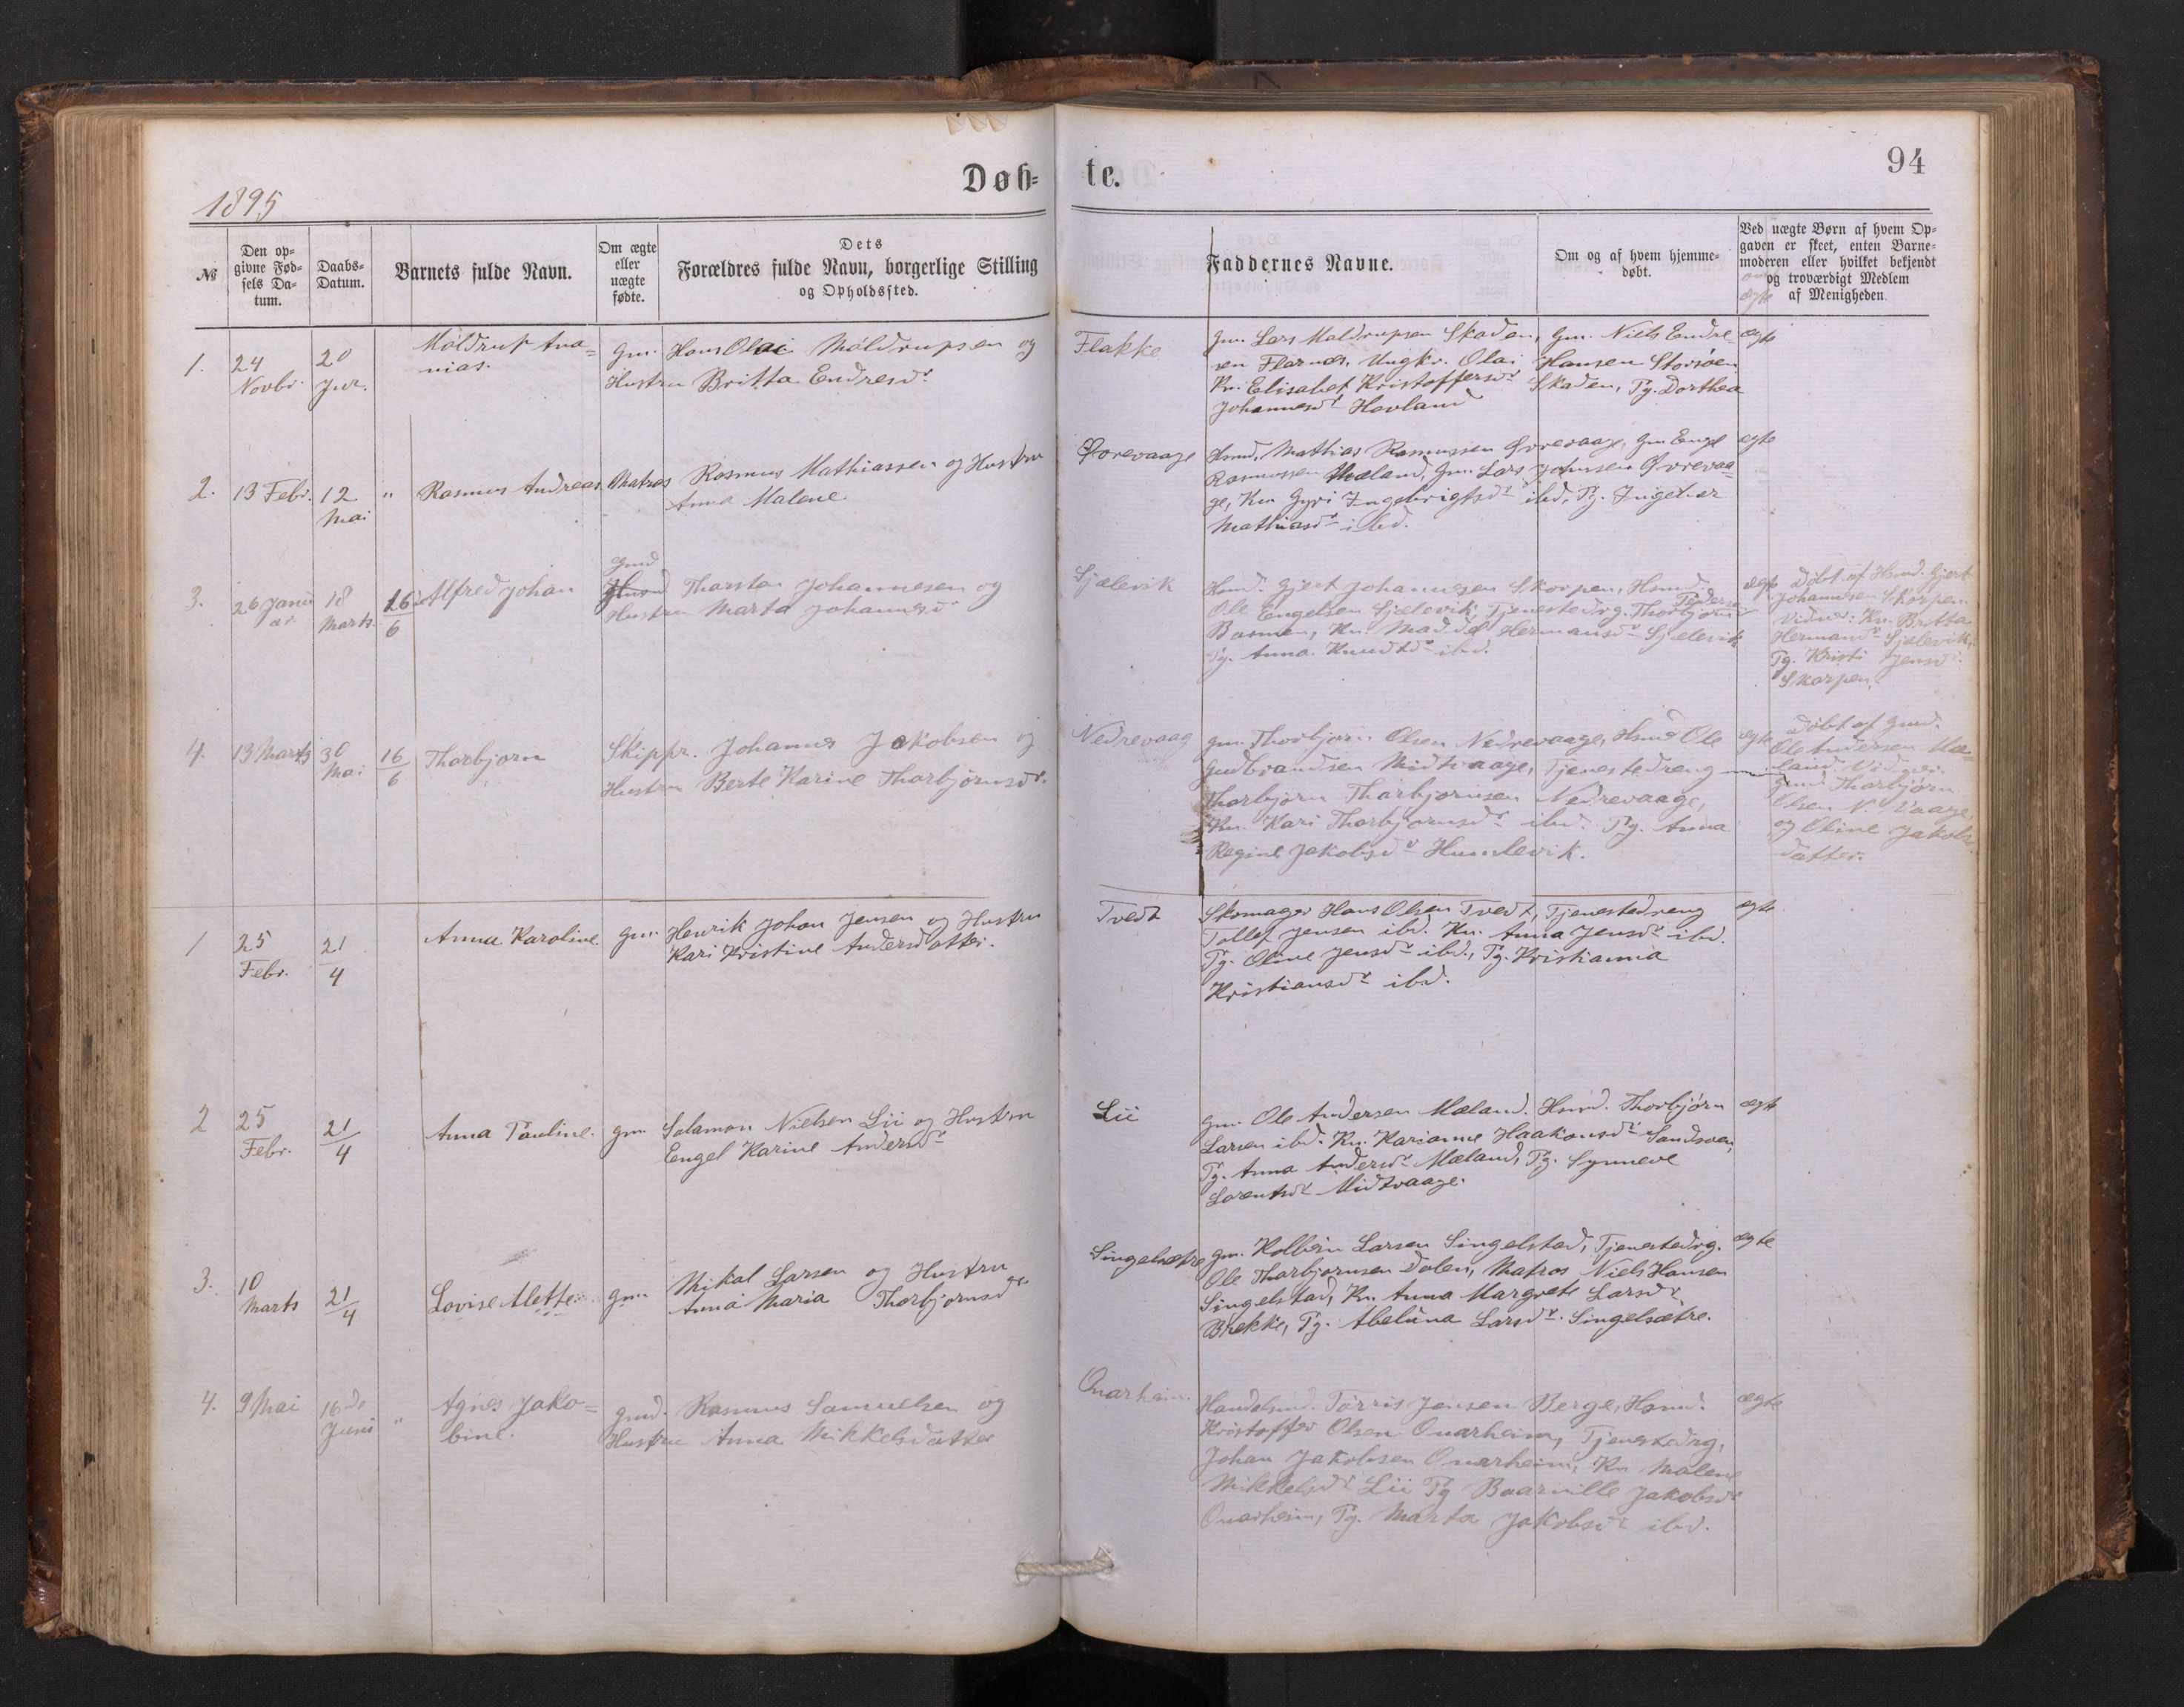 1895
Døb=
te.
94
№
Den op=
givne Fød=
sels Da=
tum.
Daabs=
Datum.
Barnets fulde Navn.
Om ægte
eller
uægte
fødte.
Dets
Forældres fulde Navn, borgerlige Stilling
og Opholdssted.
Faddernes Navne.
Om og af hvem hjemme=
døbt.
Ved uægte Børn af hvem Op=
gaven er skeet, enten Barne=
moderen eller hvilket bekjendt
og troværdigt Medlem
af Menigheden
1.
24
Novbr.
20
Jnr.
Møldrup Ana=
nias.
Gm. Hans Olai Møldrupsen og
Hustru Britta Endresdr
Flakke
Gm. Lars Maldrupsen Skaden, Gm. Niels Endre
sen Flarnæs, Ungkr. Olai Hansen Storsøen
Kn. Elisabet Kristoffersdr Skaden, Pg. Dorthea
Johannesdr Hovland
ægte
2.
13 Febr.
12
Mai
"
Rasmus Andreas
Matros Rasmus Mathiassen og Hustru
Anna Malene
Øvrevaage
Hmd. Mathias Rasmussen Øvrevaage, Gm. Engel
Rasmussen Mæland, Gm. Lars Johnsen Øvrevaa=
ge, Kn. Gyri Ingebrigtsdr ibd. Pg. Ingeber
Mathiasdr ibd.
egte
3.
26 Janu
ar.
18
Marts.
16
6
Alfred Johan
Gmd
Husmd Tharstan Johannesen og
Hustru Marta Johannesdr
Sjælevik
Hmd. Gjert Johannesen Skorpen, Hsmd
Ole Engelsen Sjælevik, Tjenestedrg. Thorbjørn Pedersen
Bosmen, Kn. Madde Hermansdr Sjælevik
Pg. Anna Knudsdr ibd.
ægte
Døbt af Hsmd. Gjert
Johannesen Skorpen.
Vidner: Kn. Britta
Hermandr Sjælevik,
Pg. Kristi Jensdr.
Skorpen.
4.
13 Marts
30
Mai
16
6
Thorbjørn
Skippr. Johannes Jakobsen og
Hustru Berte Karine Thorbjørnsdr.
Nedrevaag
Gm. Thorbjørn Olsen Nedrevaage, Hsmd Ole
Gudbrandsen Midtvaage, Tjenestedreng
Thorbjørn Thorbjørnsen Nedrevaage,
Kn. Kari Thorbjørnsdr ibd. Pg. Anna
Regine Jakobsdr Humlevik.
ægte
Døbt af Gmd.
Ole Andersen Mæ=
land. Vidner.
Gmd Thorbjørn
Olsen N. Vaage
og Oline Jakobs
datter.
1
25
Febr.
21
4
Anna Karoline.
Gm. Henrik Johan Jensen og Hustru
Kari Kristine Andersdatter.
Tvedt
Skomager Hans Olsen Tvedt, Tjenestedreng
Tollef Jensen ibd. Kn. Anna Jensdr ibd.
Pg. Oline Jensdr ibd., Pg. Kristianna
Kristiansdr ibd.
egte
2
25
Febr.
21
4
Anna Pauline.
Gm. Salamon Nielsen Lii og Hustru
Engel Karine Andersdr
Lii
Gm. Ole Andersen Mæland. Hsmd. Thorbjørn
Larsen ibd. Kn. Karianne Haakonsdr Sandvoen,
Pg. Anna Andersdr Mæland, Pg. Synneve
Larentsdr Midtvaage.
ægte
3.
10
Marts
21
4
Lovise Alette.
Gm. Mikal Larsen og Hustru
Anna Maria Thorbjørnsdr.
Singelsætre
Gm. Kolbein Larsen Singelstad, Tjenestedrg.
Ole Thorbjørnsen Dalen, Matros Niels Hansen
Singelstad, Kn. Anna Margrete Larsdr
Brekke, Pg. Abeluna Larsdr. Singelsætre.
ægte
4.
9 Mai
16de
Juni
"
Agnes Jako=
bine.
Gmd. Rasmus Samuelsen og
Hustru Anna Mikkelsdatter
Onarheim.
Handelsmd. Tørris Jensen Berge, Hsmd.
Kristoffer Olsen Onarheim, Tjenestedrg.
Johan Jakobsen Onarheim, Kn Malene
Mikkelsdr Lii Pg Baarnille Jakobsdr
Onarheim, Pg. Marta Jakobsdr ibd.
ægte